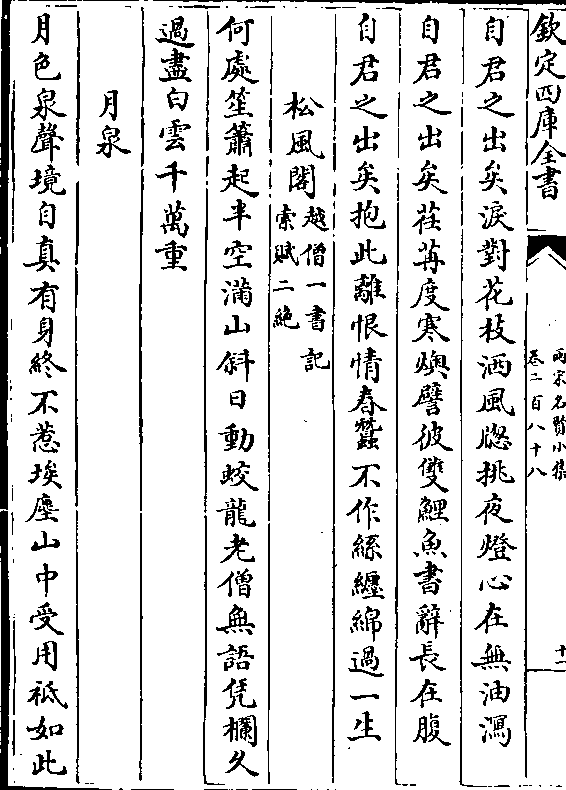 欽定四庫全書
兩宋名賢小集
卷二百八十八
十二
自君之出矣淚對花枝洒風牕挑夜燈心在無油瀉
自君之出矣荏苒度寒燠譬彼雙鯉魚書辭長在腹
自君之出矣抱此離恨情春蠶不作絲纏綿過一生
松風閣越僧一書記
索賦二絶
何處笙簫起半空滿山斜日動蛟龍老僧無語凭欄久
過盡白雲千萬重
月泉
月色泉聲境自真有身終不惹埃塵山中受用祗如此